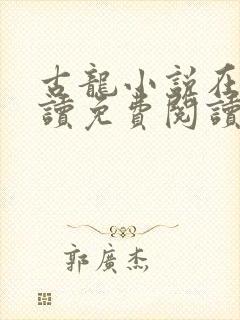 古龍小説在
讀免費閱讀
郭廣杰